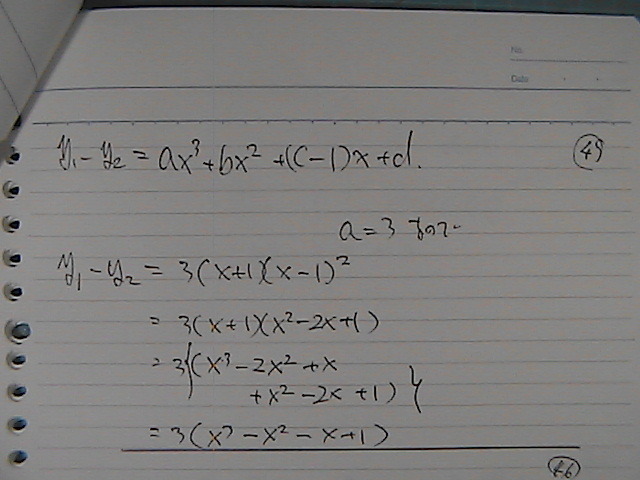 No.
Date
y₁ - y₂ = ax³ + bx² + (c-1)x + d. ㊺
a = 3 なので
y₁ - y₂ = 3(x+1)(x-1)²
= 3(x+1)(x²-2x+1)
= 3{(x³-2x²+x
+x²-2x+1)}
= 3(x³-x²-x+1)
㊻